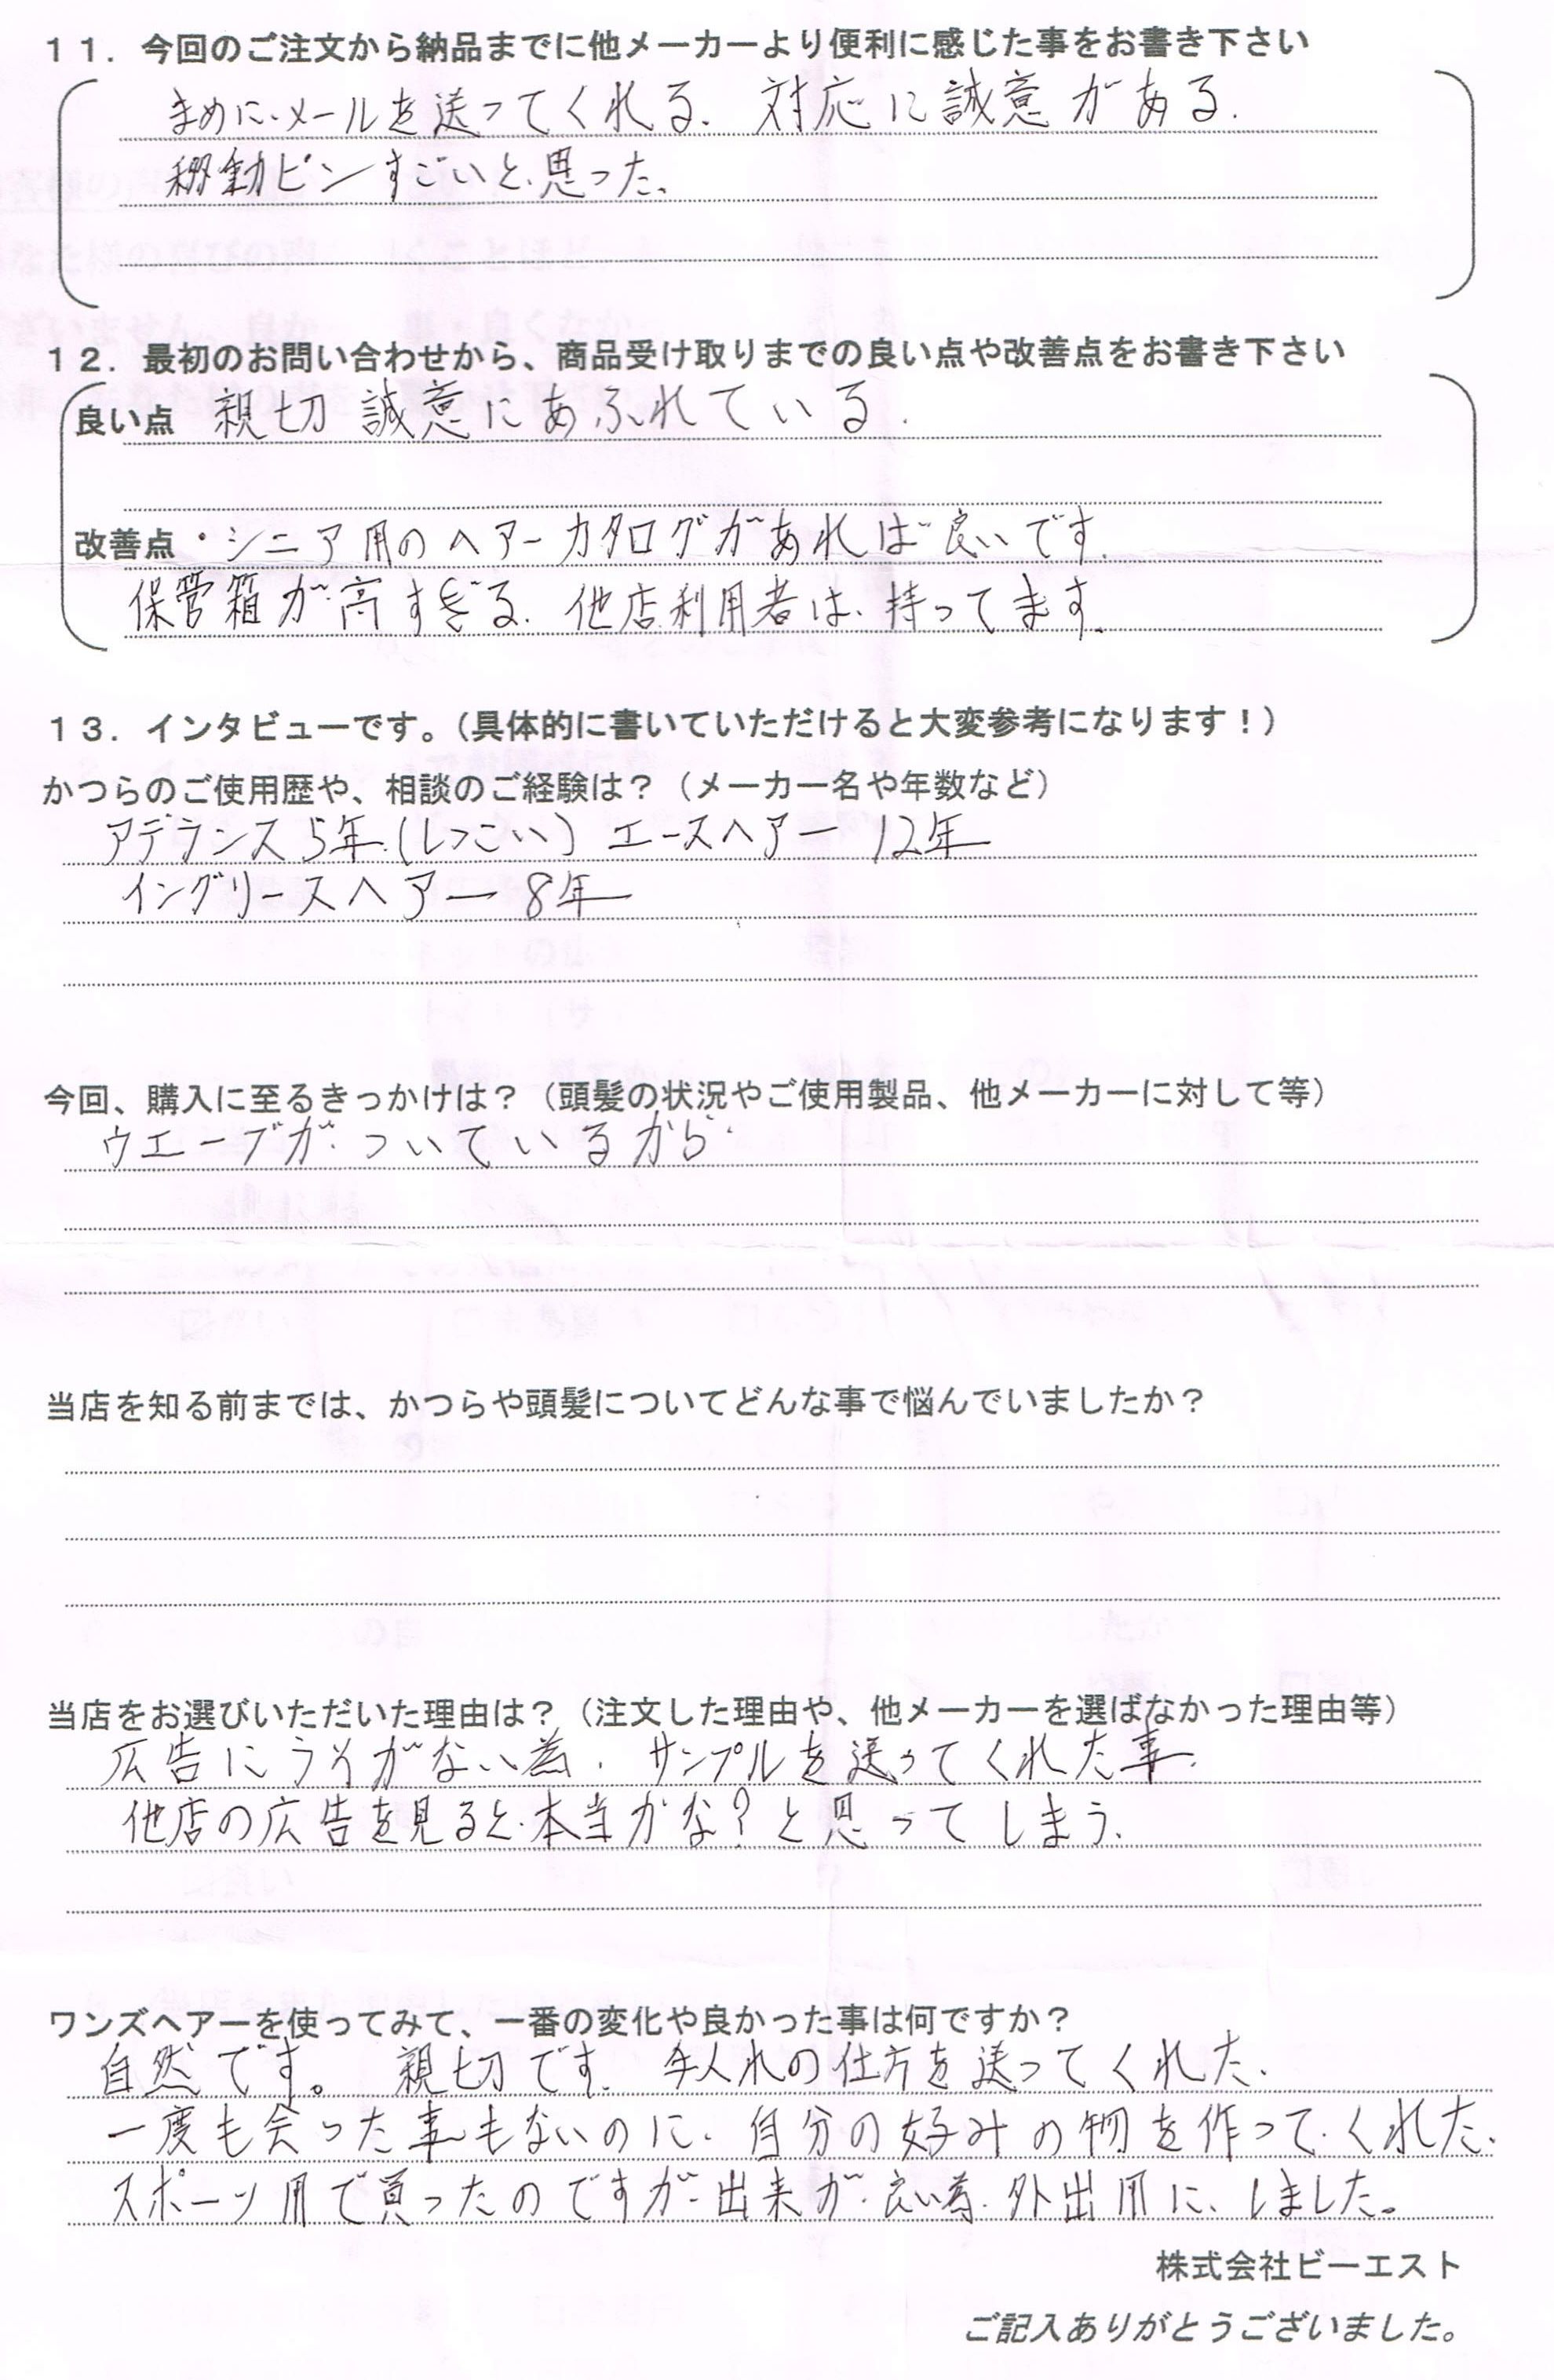 １１．今回のご注文から納品までに他メーカーより便利に感じた事をお書き下さい
まめに、メールを送ってくれる. 対応に誠意がある.
移動ピンすごいと思った。
１２．最初のお問い合わせから、商品受け取りまでの良い点や改善点をお書き下さい
良い点 親切 誠意にあふれている.
改善点・シニア用のヘアーカタログがあれば良いです.
保管箱が高すぎる. 他店利用者は、持ってます.
１３．インタビューです。（具体的に書いていただけると大変参考になります！）
かつらのご使用歴や、相談のご経験は？（メーカー名や年数など）
アデランス5年.(しつこい) エースヘアー 12年
イングリースヘアー 8年
今回、購入に至るきっかけは？（頭髪の状況やご使用製品、他メーカーに対して等）
ウエーブがついているから.
当店を知る前までは、かつらや頭髪についてどんな事で悩んでいましたか？
当店をお選びいただいた理由は？（注文した理由や、他メーカーを選ばなかった理由等）
広告にうそがない為. サンプルを送ってくれた事.
他店の広告を見ると.本当かな?と思ってしまう.
ワンズヘアーを使ってみて、一番の変化や良かった事は何ですか？
自然です。 親切です. 手入れの仕方を送ってくれた.
一度も会った事もないのに. 自分の好みの物を作ってくれた.
スポーツ用で買ったのですが出来が良い為.外出用に、しました。
株式会社ビーエスト
ご記入ありがとうございました。